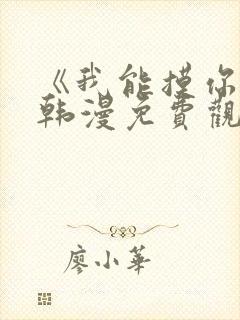 《我能摸你
韩漫免費觀
廖小華